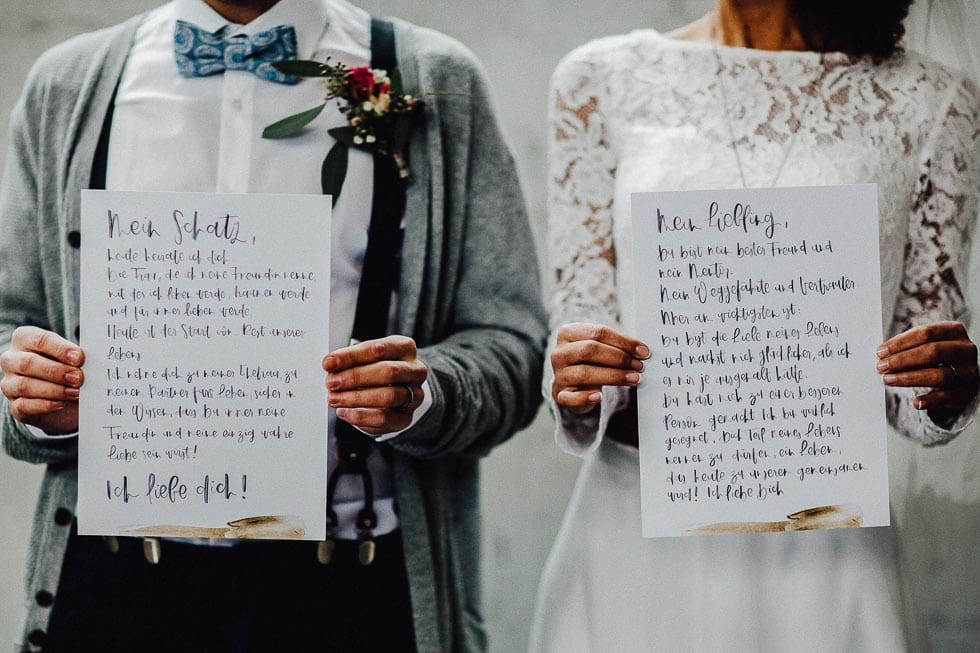 Mein Schatz,
heute heirate ich dich
Die Frau, die ich meine Freundin nenne,
mit der ich leben werde, träumen werde
und für immer lieben werde
Heute ist der Start vom Rest unseres
Lebens
Ich nehme dich zu meiner Ehefrau, zu
meinem Partner fürs Leben, sicher in
dem Wissen, dass Du immer meine
Freundin und meine einzig wahre
Liebe sein wirst!
Ich liebe dich!
Mein Liebling,
Du bist mein bester Freund und
mein Mentor.
Mein Weggefährte und Vertrauter
Aber am wichtigsten ist:
Du bist die Liebe meines Lebens
und machst mich glücklicher, als ich
es mir je ausgemalt hätte.
Du hast mich zu einer besseren
Person gemacht Ich bin wirklich
gesegnet, Dich Teil meines Lebens
nennen zu dürfen, ein Leben,
das heute zu unserem gemeinsamen
wird! Ich liebe Dich